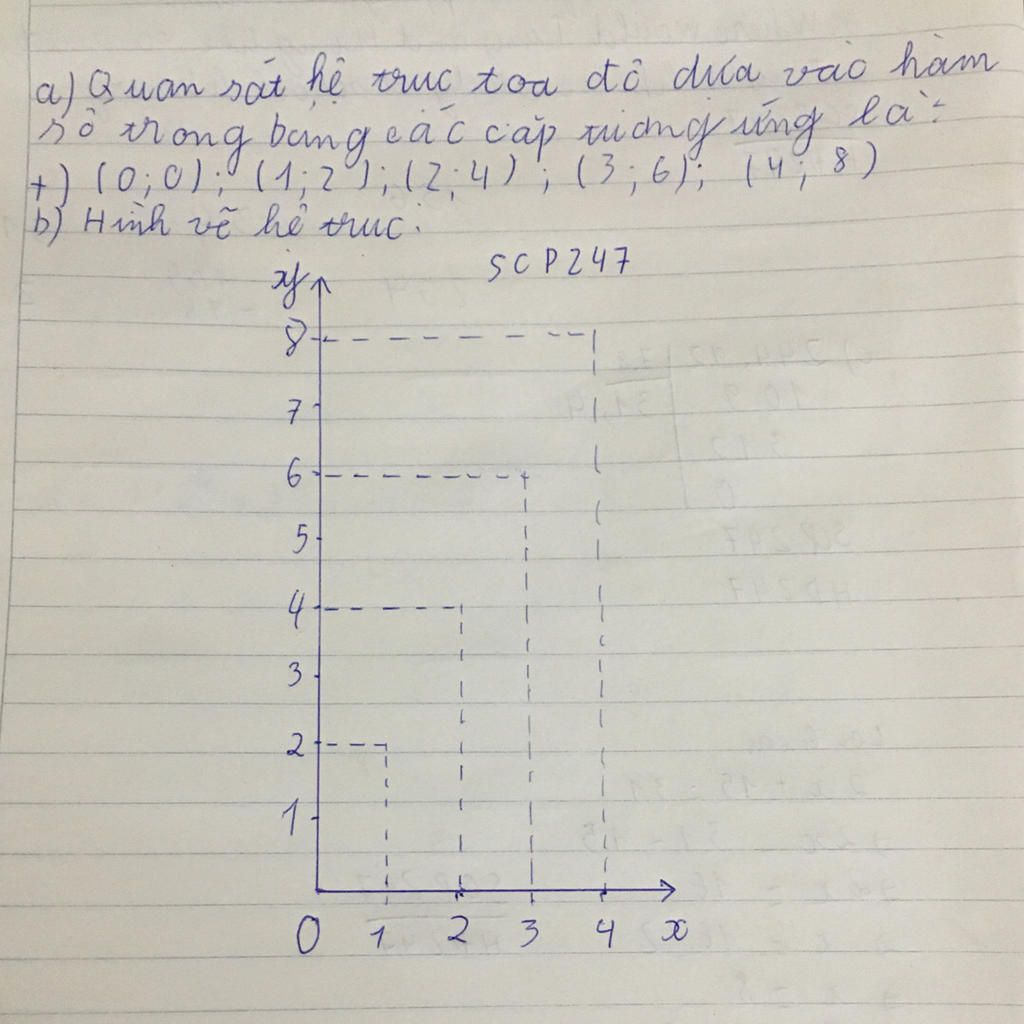 a) Quan sát hệ truc toa đô dưa vào hàm
số trong bảng các cặp tương ứng là:
+) (0;0); (1;2); (2;4); (3;6); (4;8)
b) Hình vẽ hê truc.
SCP247
y
8
7
6
5
4
3
2
1
0 1 2 3 4 x